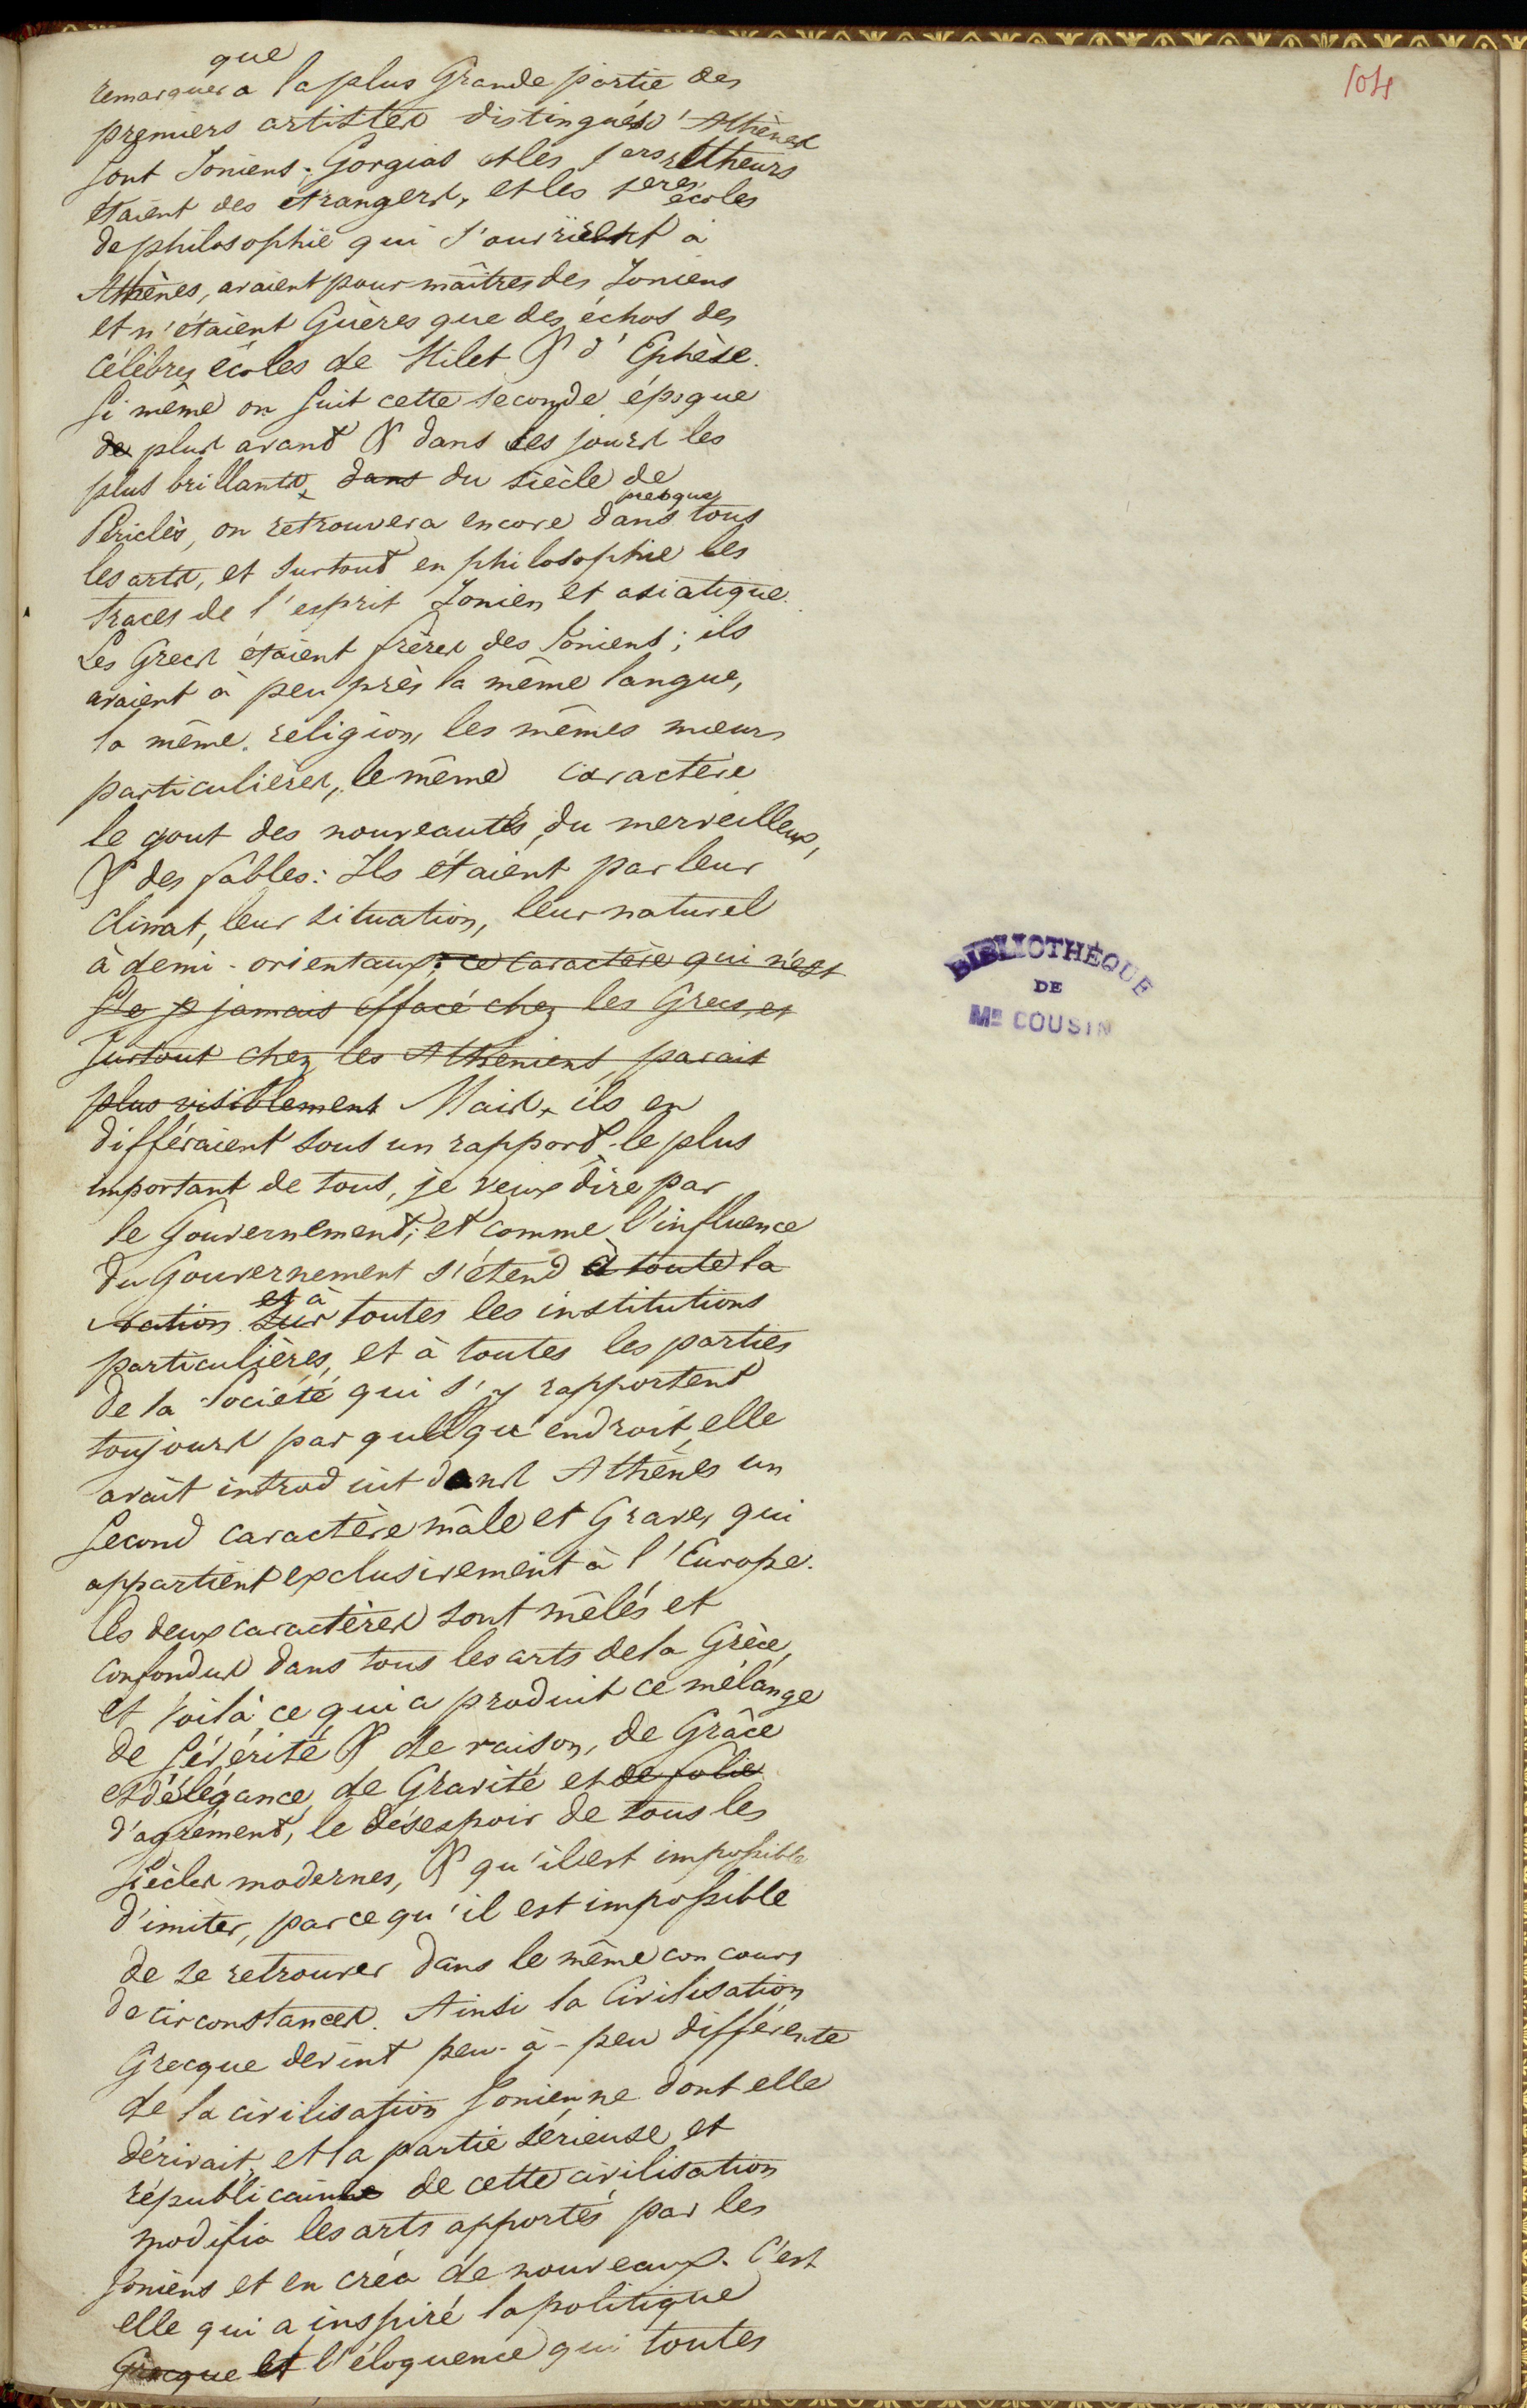 104
que
remarquera la plus Grande partie des
premiers artistes distingués d'Athènes
sont Ioniens; Gorgias et les 1ers rétheurs
étaient des étrangers, et les 1eres écoles
de philosophie qui s'ouvrirent à
Athènes, avaient pour maîtres des Ioniens
et n'étaient Guères que des échos des
célèbres écoles de Milet & d'Ephèse.
Si même on suit cette seconde époque
de plus avant & dans les jours les
plus brillants, dans du siècle de
presque
Periclès, on retrouvera encore dans tous
les arts, et surtout en philosophie les
traces de l'esprit Ionien et asiatique.
Les Grecs étaient frères des Ioniens; ils
avaient à peu près la même langue,
la même religion, les mêmes mœurs
particulières, le même caractère
le gout des nouveautés, du merveilleux,
& des fables: Ils étaient par leur
climat, leur situation, leur naturel
à demi-orientaux; ce caractère qui n'est
jamais effacé chez les Grecs, et
surtout chez les Atheniens, parait
plus visiblement Mais, ils en
différaient sous un rapport le plus
important de tous, je veux dire par
le Gouvernement; et comme l'influence
du Gouvernement s'étend à toute la
et à
nation sur toutes les institutions
particulières, et à toutes les parties
de la Société qui s'y rapportent
toujours par quelqu'endroit, elle
avait introduit dans Athènes un
second caractère mâle et Grave, qui
appartient exclusivement à l'Europe.
Ces deux caractères sont mêlés et
confondus dans tous les arts de la Grèce,
et voilà ce qui a produit ce mélange
de sévérité & de raison, de Grâce
et d'élégance, de Gravité et de folie
d'agrément, le désespoir de tous les
siècles modernes, & qu'il est impossible
d'imiter, parce qu'il est impossible
de se retrouver dans le même concours
de circonstances. Ainsi la Civilisation
Grecque devint peu-à-peu différente
de la civilisation Ionienne dont elle
dérivait, et la partie sérieuse et
républicaine de cette civilisation
modifia les arts apportés par les
Ioniens et en créa de nouveaux. C'est
elle qui a inspiré la politique
Grecque et l'éloquence qui toutes
BIBLIOTHÈQUE
DE
Mr COUSIN